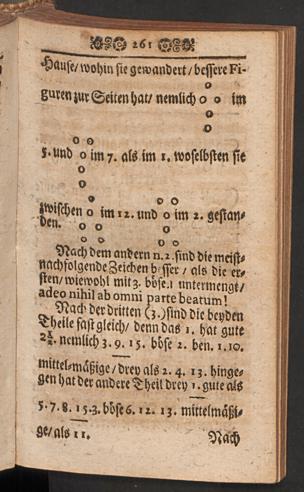 261
Hause/ wohin sie gewandert/ bessere Fi-
guren zur Seiten hat/ nemlich im
5. und im 7. als im 1. woselbsten sie
zwischen im 12. und im 2. gestan-
den.
Nach dem andern n. 2. sind die meist-
nachfolgende Zeichen besser / als die er-
sten/ wiewohl mit 3. böse. 1 untermengt/
adeo nihil ab omni parte beatum!
Nach der dritten (3.) sind die beyden
Theile fast gleich/ denn das 1. hat gute
nemlich 3. 9. 15. böse 2. ben. 1. 10.
mittel-mäßige/ drey als 2. 4. 13. hinge-
gen hat der andere Theil drey 1. gute als
5. 7. 8. 15. 3. böse 6. 12. 13. mittelmäßi-
ge/ als 11.
Nach